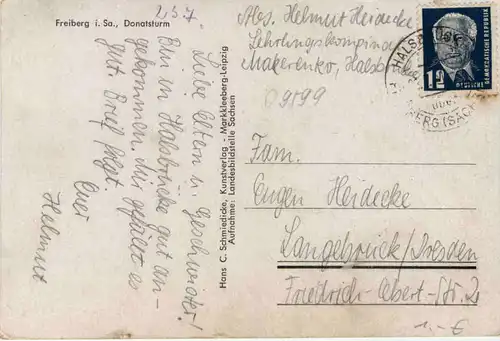 Freiberg i. Sa., Donatsturm
25 7.
Liebe Eltern u. Geschwister!
Bin in Halsbrücke gut an-
gekommen. Mir gefällt es
gut. Brief folgt.
Euer
Helmut
Hans C. Schmiedicke, Kunstverlag - Markkleeberg-Leipzig
Aufnahme: Landesbildstelle Sachsen
Abs. Helmut Heidecke
Lehrlingskompinat
Makarenko, Halsbr
09199
12
DEUTSCHE
DEMOKRATISCHE REPUBLIK
HALSB
BERG (SACHS
Fam.
Eugen Heidecke
Langebrück/Dresden
Friedrich-Ebert-Str. 2
1.- €